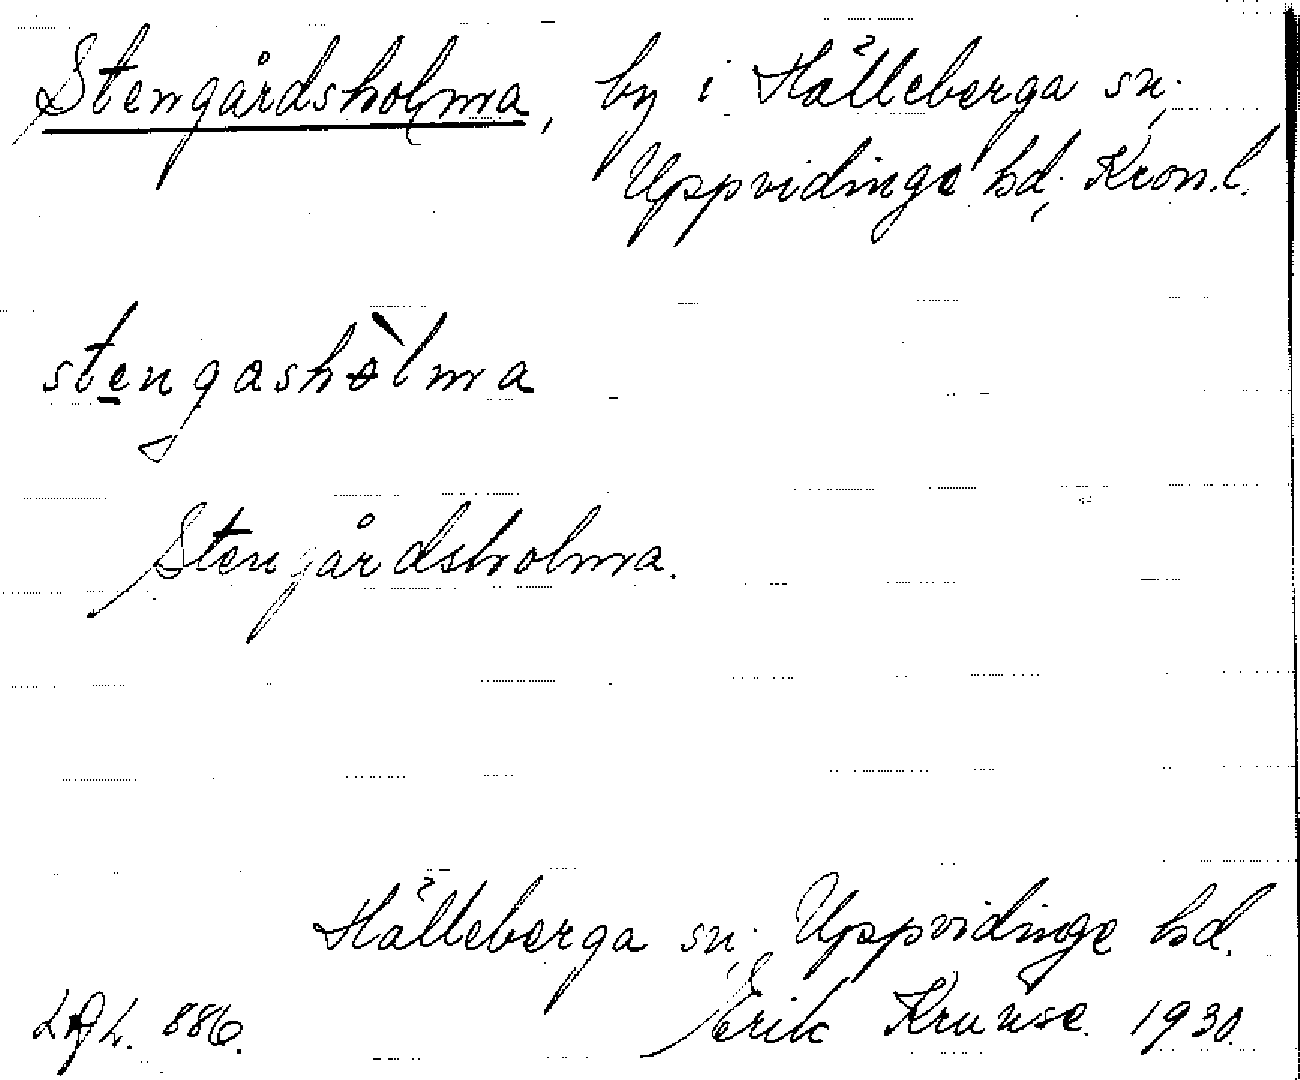 Stengårdsholma, by i Hälleberga sn,
Uppvidinge hd, Kron.l.
stengashòlma
Stengårdsholma.
Hälleberga sn, Uppvidinge hd.
886. Erik Krause. 1930.